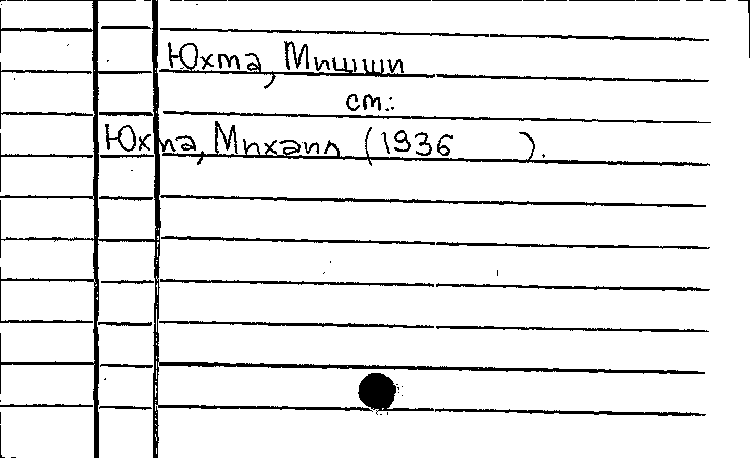 Юхма, Мишши
см.:
Юхма, Михаил (1936     ).